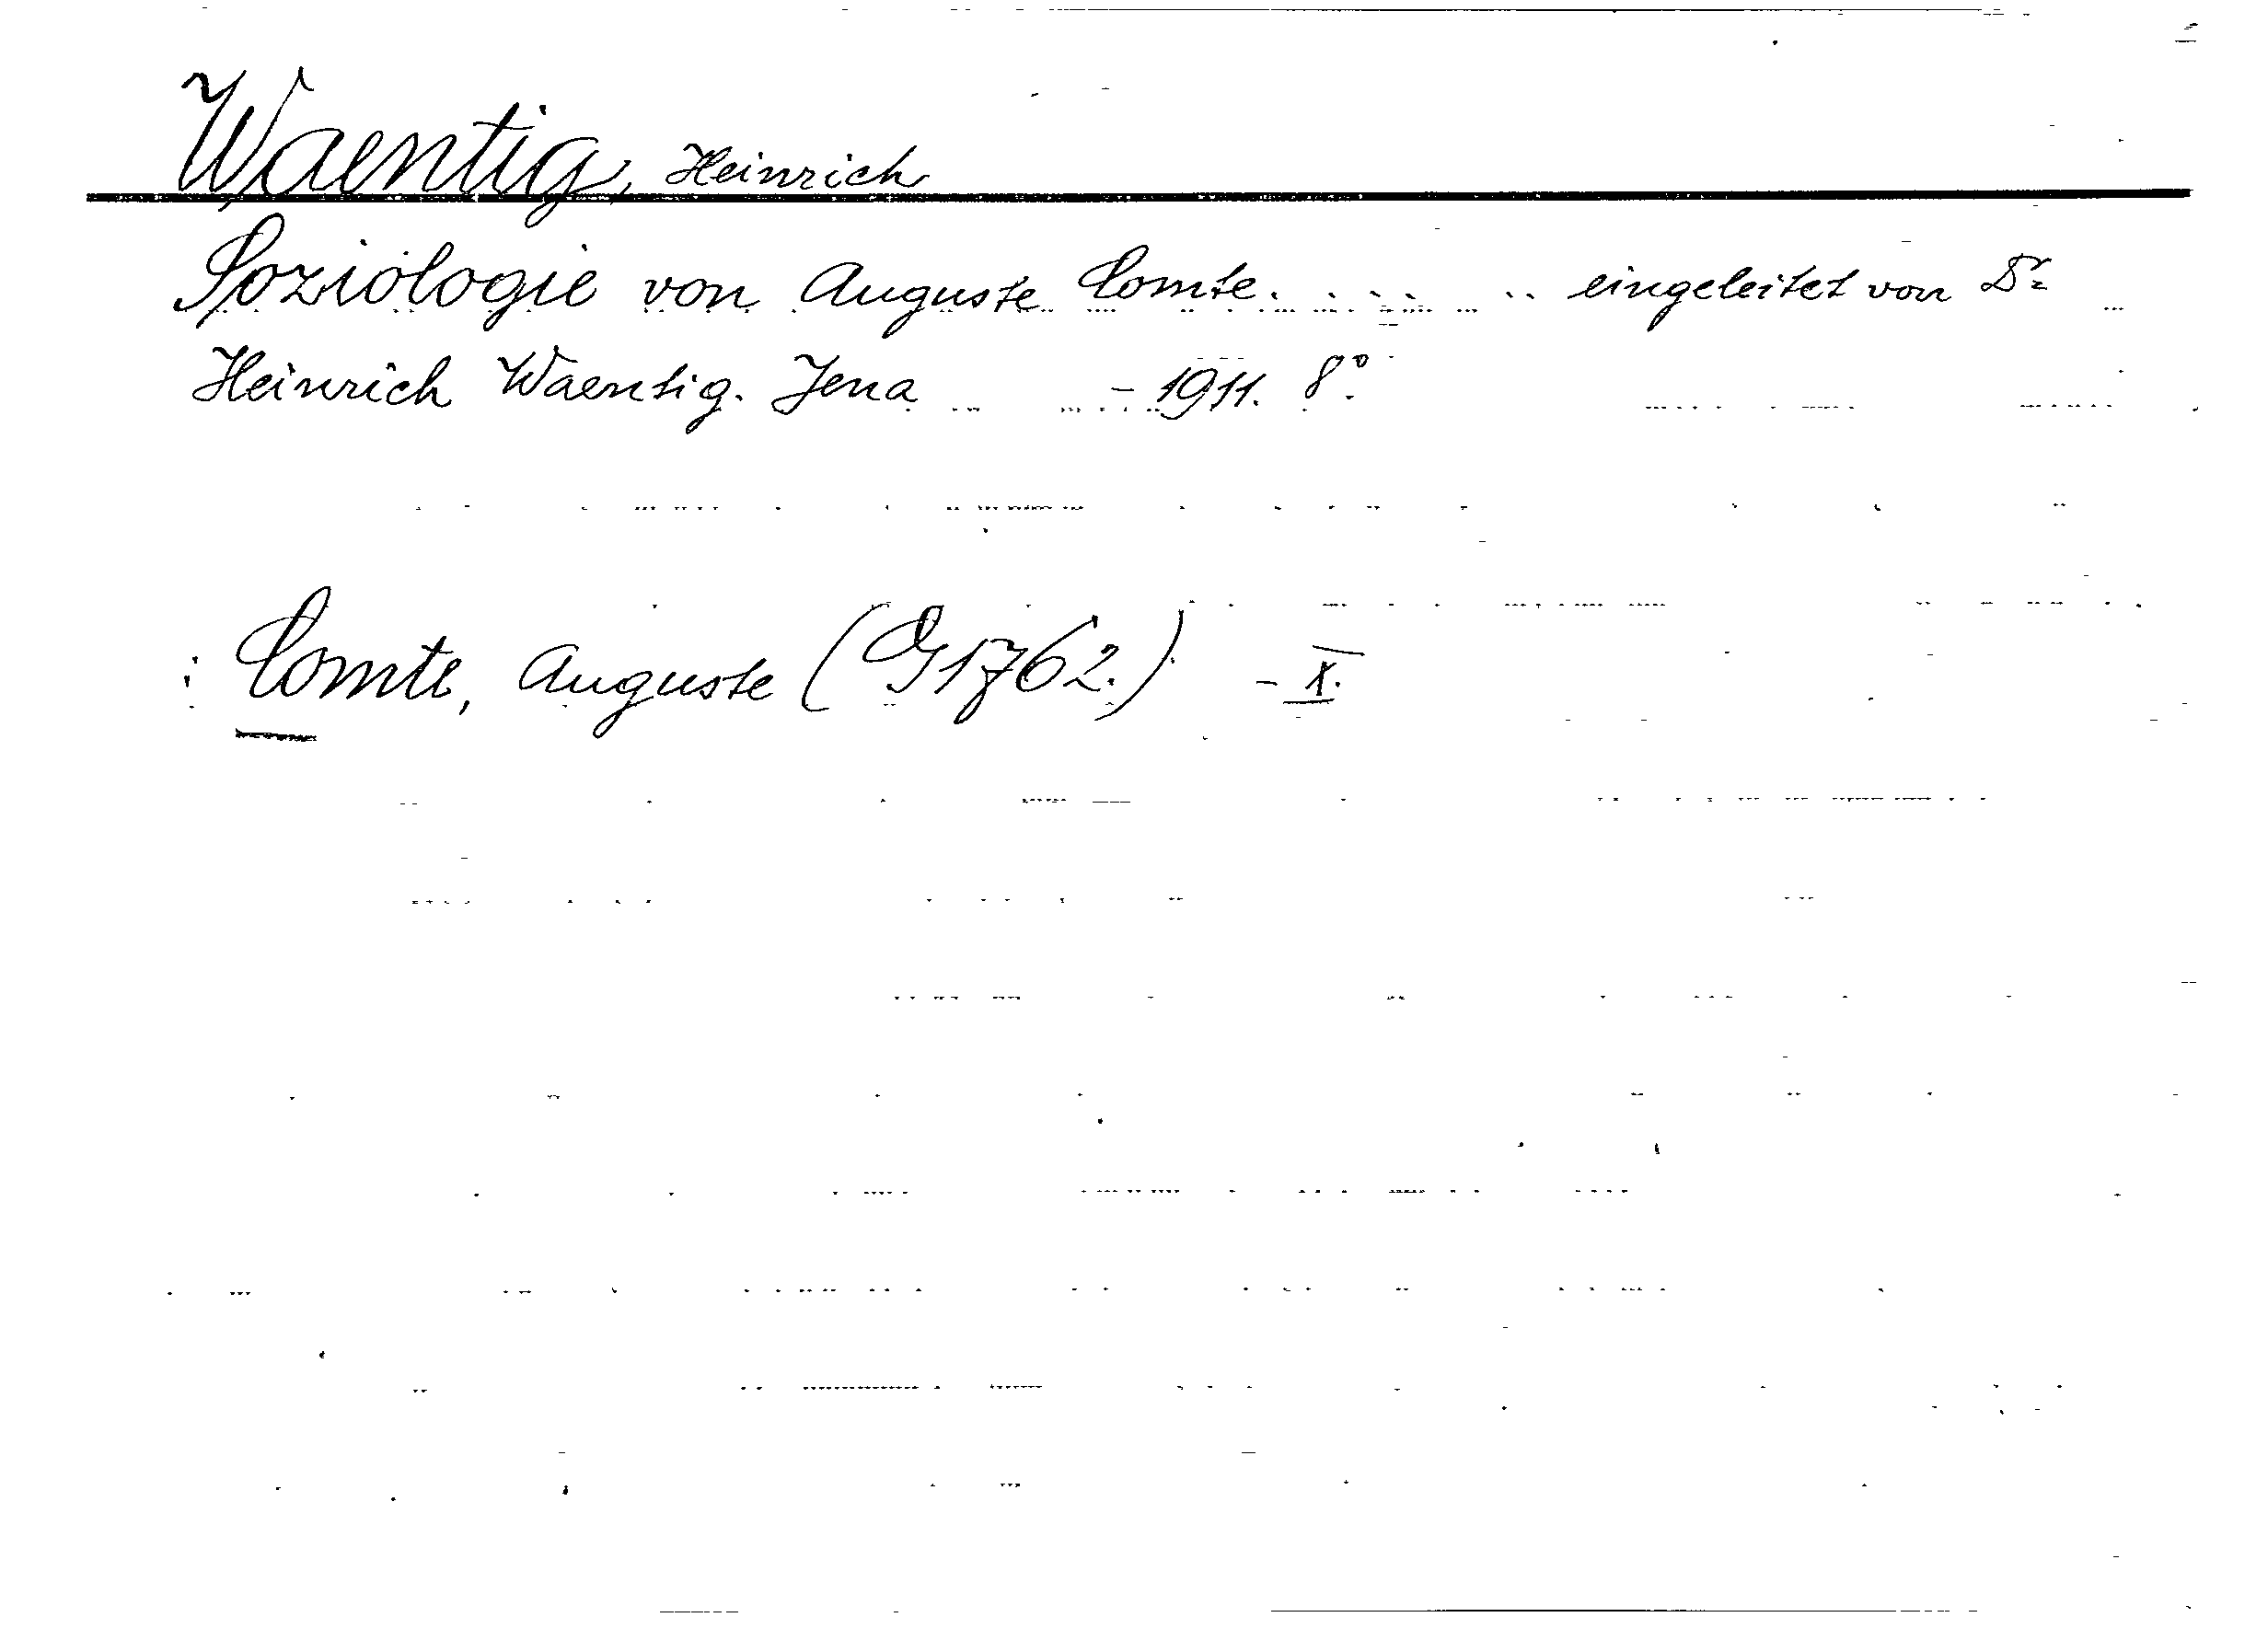 Waentig, Heinrich
Soziologie von Auguste Comte. . . . . . . eingeleitet von Dr
Heinrich Waentig. Jena - 1911. 8°.
: Comte, Auguste (G 1762.) - X.